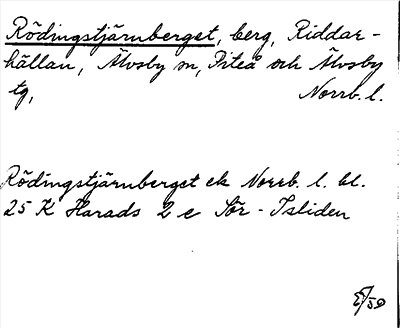 Rödingstjärnberget, berg, Riddar-
hällan, Älvsby sn, Piteå och Älvsby
tg, Norrb. l.
Rödingstjärnberget ek Norrb. l. bl.
25 K Harads 2 e Sör-Isliden
/59